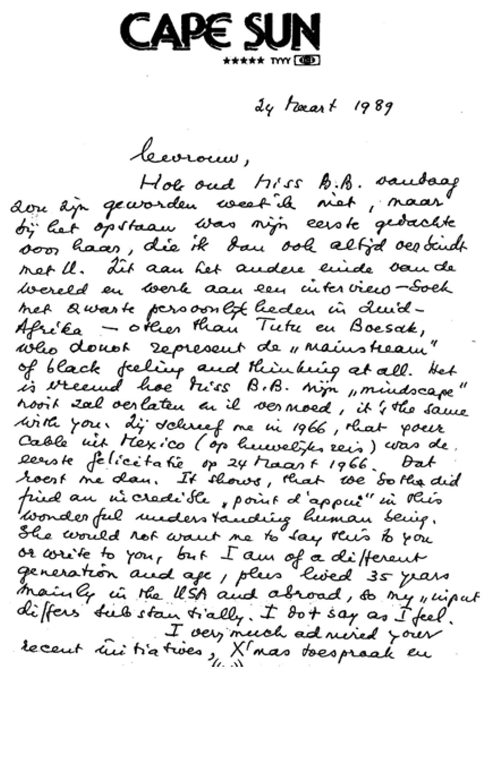 CAPE SUN
★★★★★ TYYY
24 Maart 1989
Mevrouw,
Hoe oud Miss B.B. vandaag
zou zijn geworden weet ik niet, maar
bij het opstaan was mijn eerste gedachte
voor haar, die ik dan ook altijd verbindt
met U. Zit aan het andere einde van de
wereld en werk aan een interview-boek
met zwarte persoonlijkheden in Zuid-
Afrika — other than Tutu en Boesak,
who donot represent de „mainstream"
of black feeling and thinking at all. Het
is vreemd hoe Miss B.B. mijn „mindscape"
nooit zal verlaten en ik vermoed, it's the same
with you. Zij schreef me in 1966, that your
cable uit Mexico (op huwelijksreis) was de
eerste felicitatie op 24 Maart 1966. Dat
roest me dan. It shows, that we both did
find an incredible „point d'appui" in this
wonderful understanding human being.
She would not want me to say this to you
or write to you, but I am of a different
generation and age, plus lived 35 years
mainly in the USA and abroad, so my „input
differs substantially. I do + say as I feel.
I very much admired your
recent initiatives, X'mas toespraak en